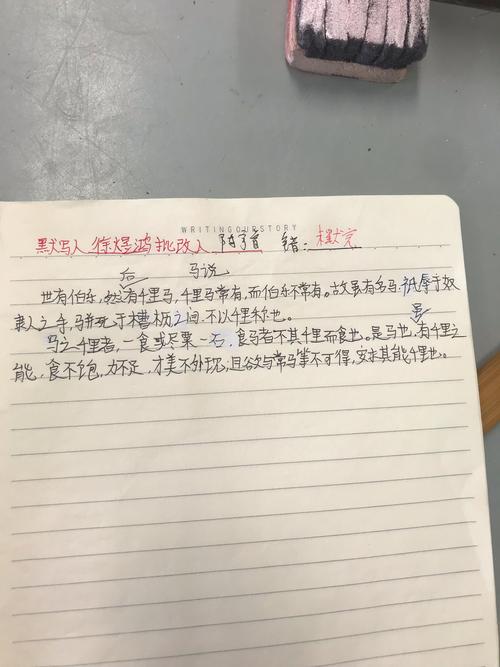 WRITINGOURSTORY
默写人 徐煜鸿 批改人 错: 未默完
后 马说
世有伯乐,然有千里马,千里马常有,而伯乐不常有。故虽有名马,祇辱于奴
隶人之手,骈死于槽枥之间,不以千里称也。
虽
马之千里者,一食或尽粟一石,食马者不其千里而食也。是马也,有千里之
能,食不饱,力不足,才美不外现,且欲与常马等不可得,安求其能千里也。